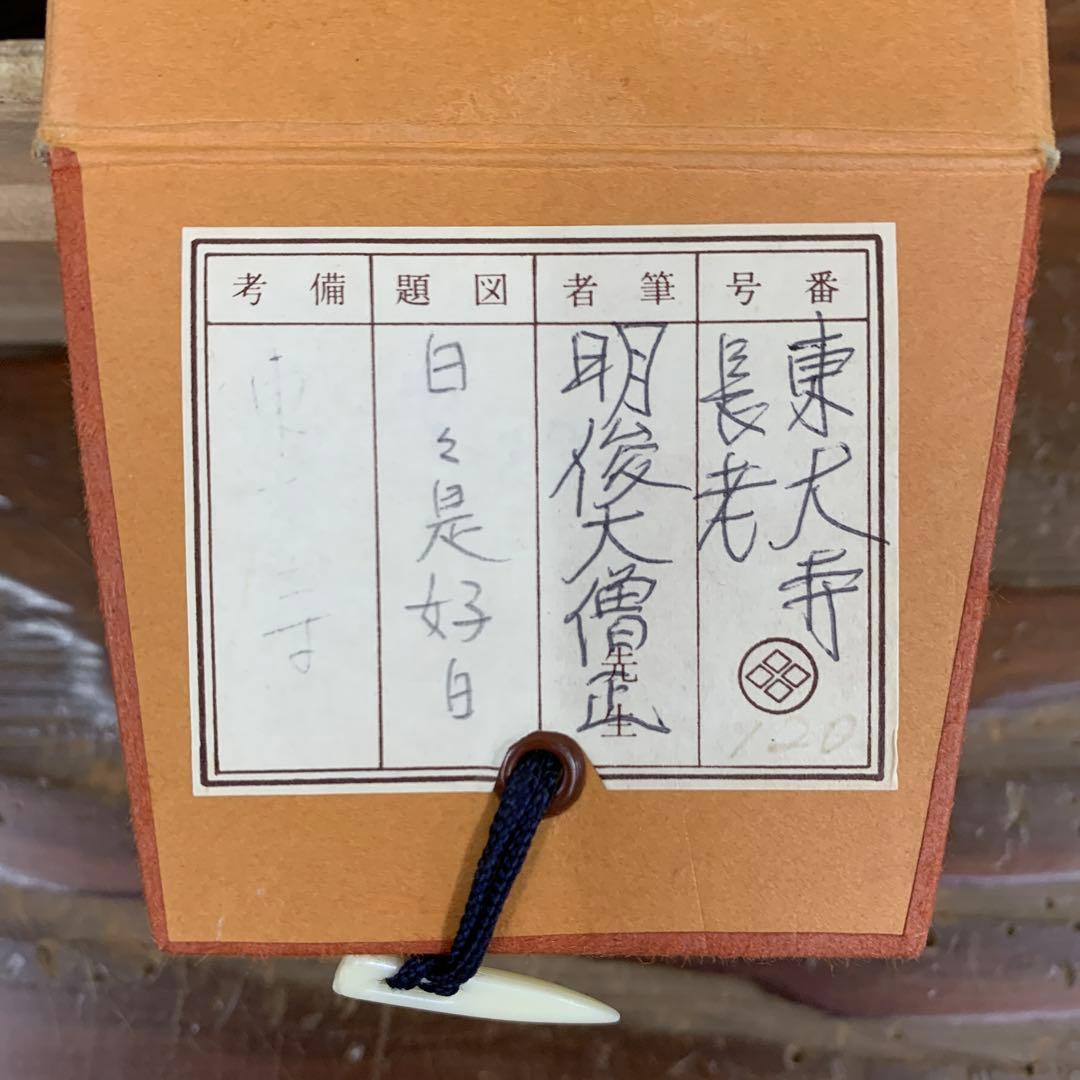 番号
東大寺
長老
120
筆者
明俊大僧正
先生
図題
日々是好日
備考
東
寺